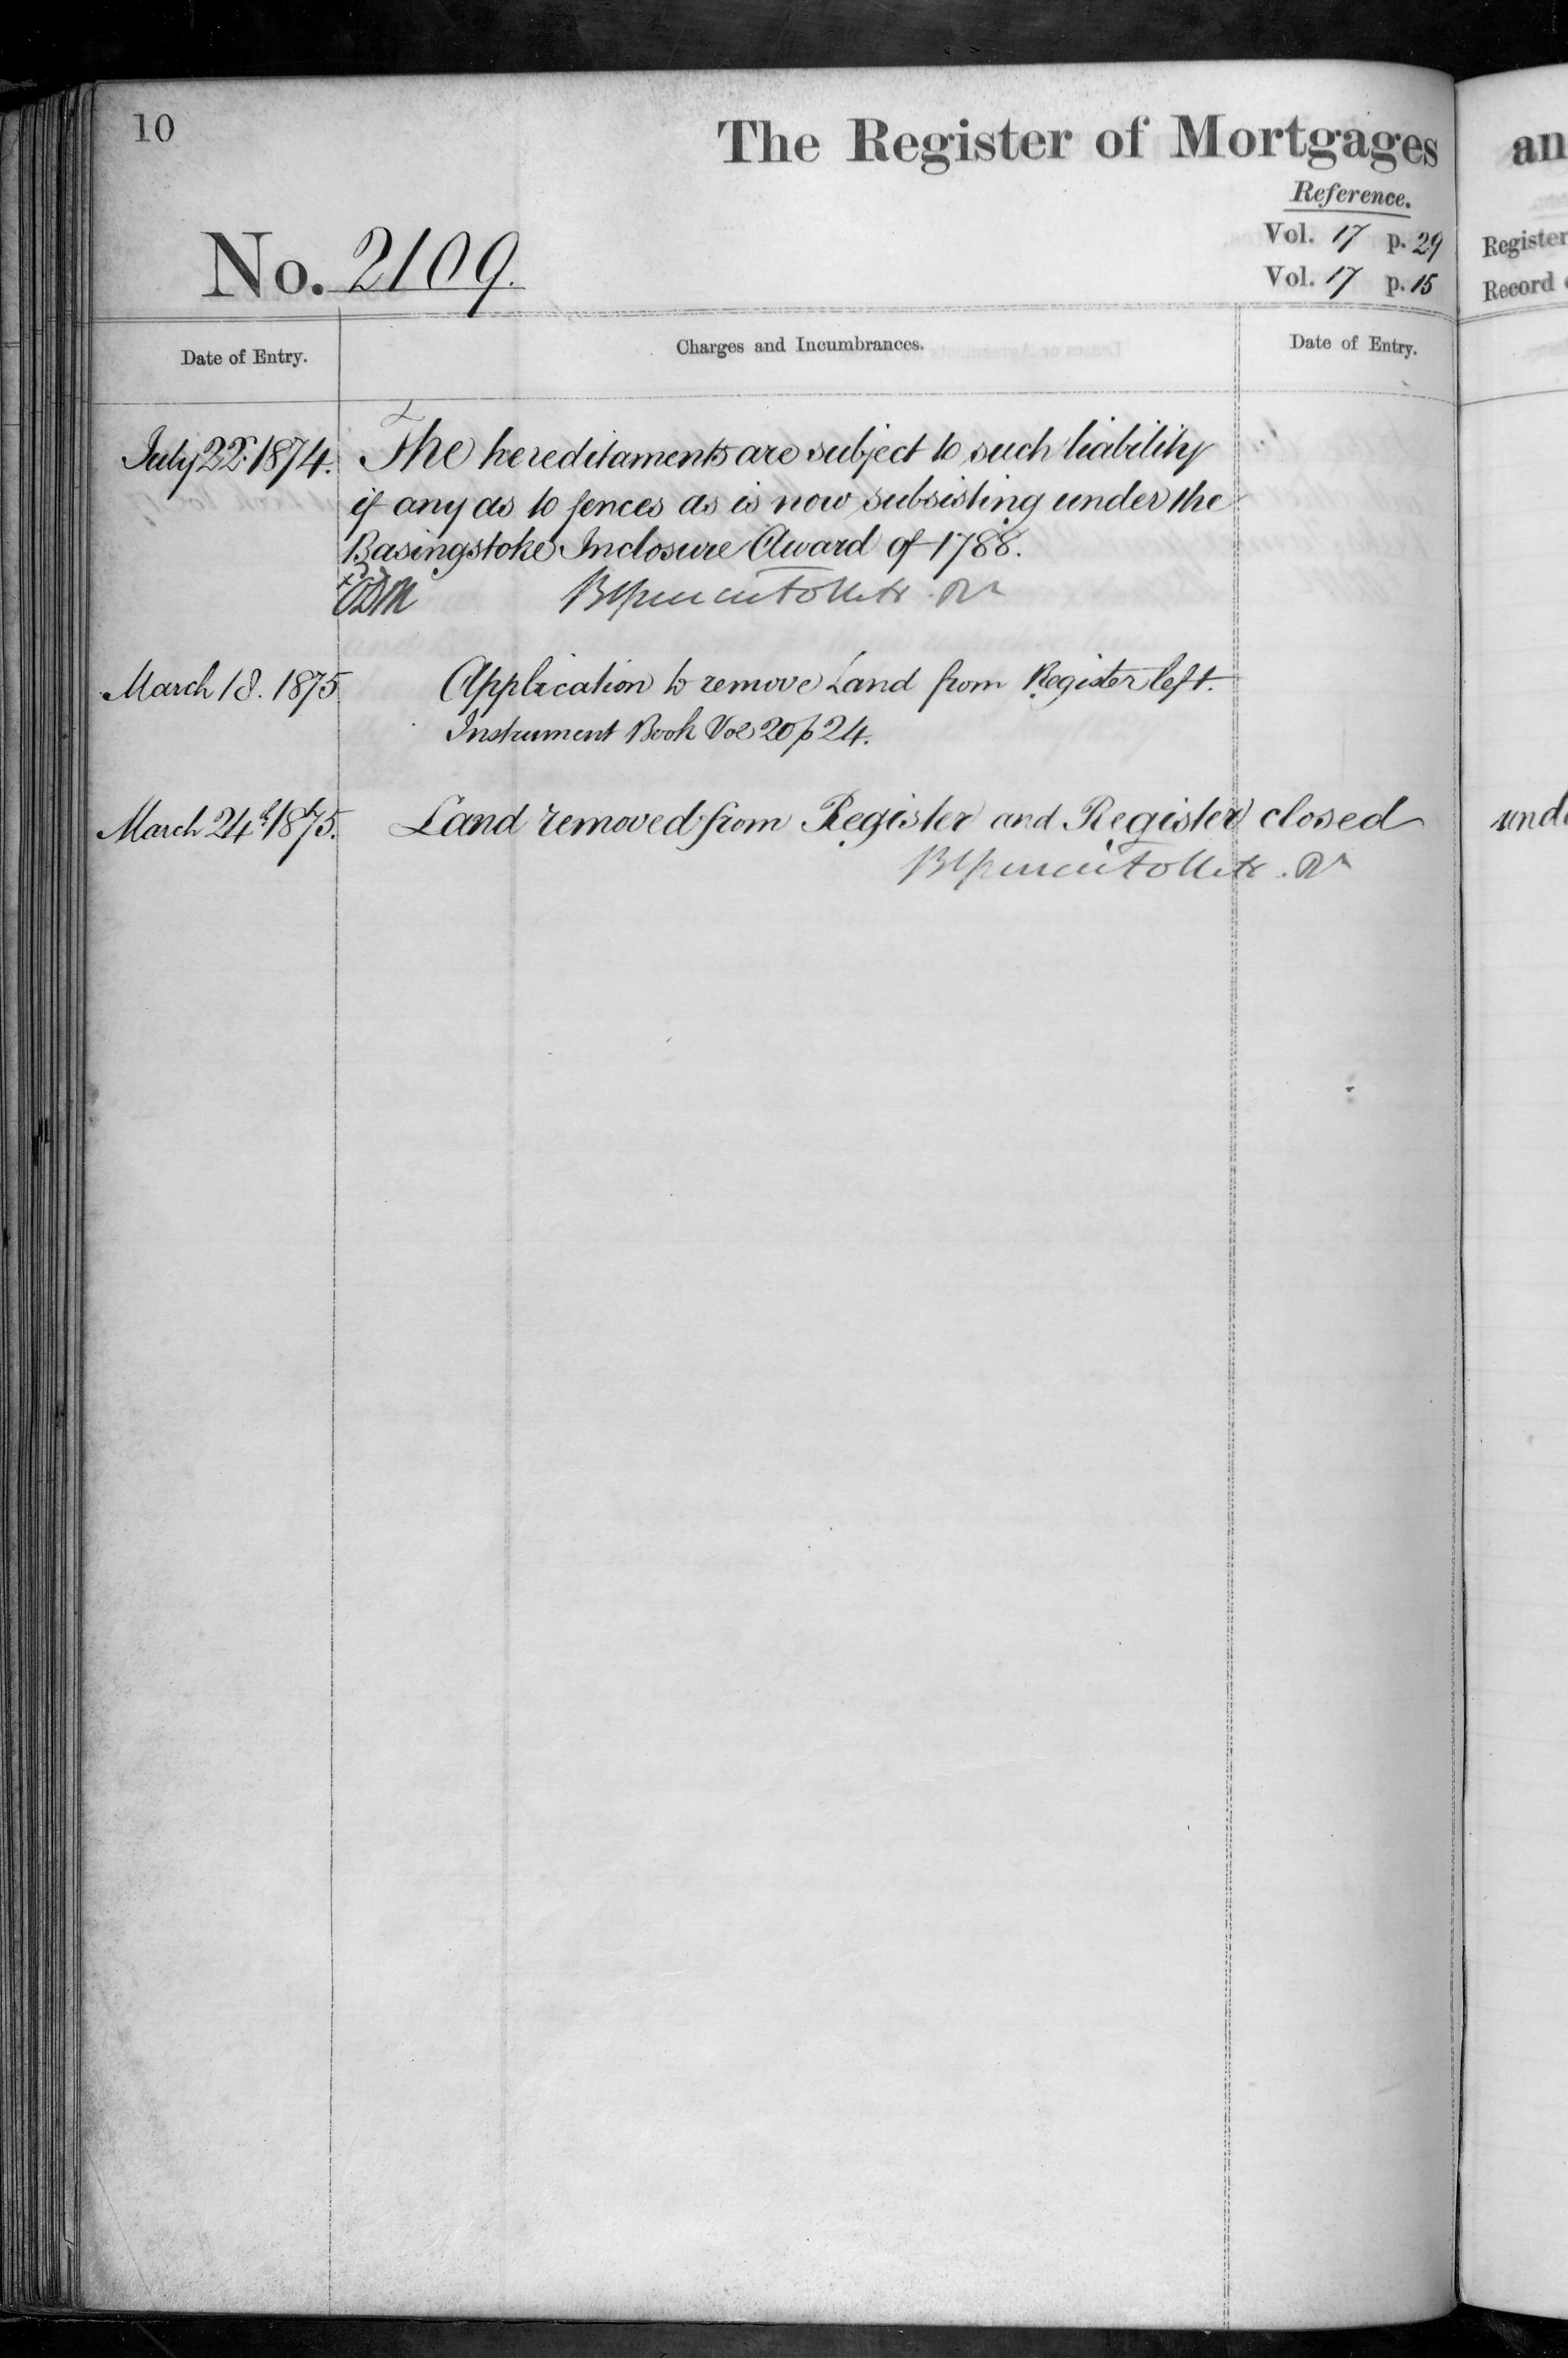 10
The Register of Mortgages
an
Reference.
Vol. 17 p. 29
Register
Vol. 17 p. 15
Record
No. 2109.
Date of Entry.
Charges and Incumbrances.
Date of Entry.
July 22. 1874. The hereditaments are subject to such liability
if any as to fences as is now subsisting under the
Basingstoke Inclosure Award of 1788.
March 18. 1875 Application to remove Land from Register left.
Instrument Book Vol 20 p 24.
March 24th 1875. Land removed from Register and Register closed
unde